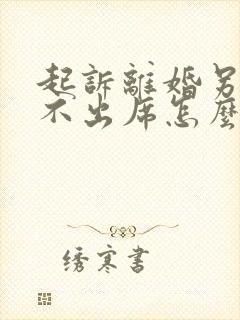 起訴離婚另
不出席怎麼
绣寒書